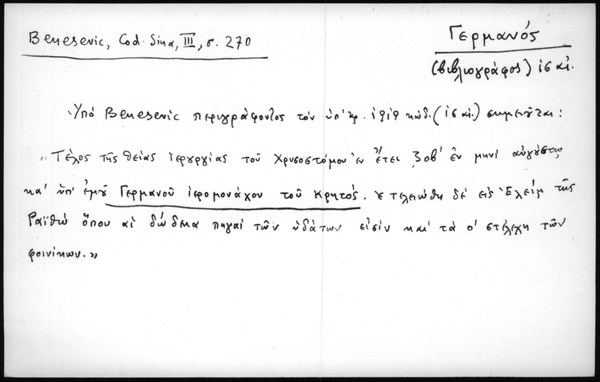 Benesevic, Cod. Sina, III, σ. 270
Γερμανός
(βιβλιογράφος) ις αἰ.
Ὑπό Benesevic περιγράφοντος τόν ὑπ' ἀρ. κώδ. (ις αἰ.) σημειοῦται:
„Τέλος τῆς θείας ἱερυργίας τοῦ Χρυσοστόμου ἐν ἔτει ζοβ' ἐν μηνί αὐγούστῳ
κα' ὑπ' ἐμοῦ Γερμανοῦ ἱερομονάχου τοῦ Κρητός. ἐτελειώθη δέ εἰς Ἐλείμ τῆς
Ραϊθῶ ὅπου αἱ δώδεκα πηγαί τῶν ὑδάτων εἰσίν καί τά ο' στελέχη τῶν
φοινίκων."